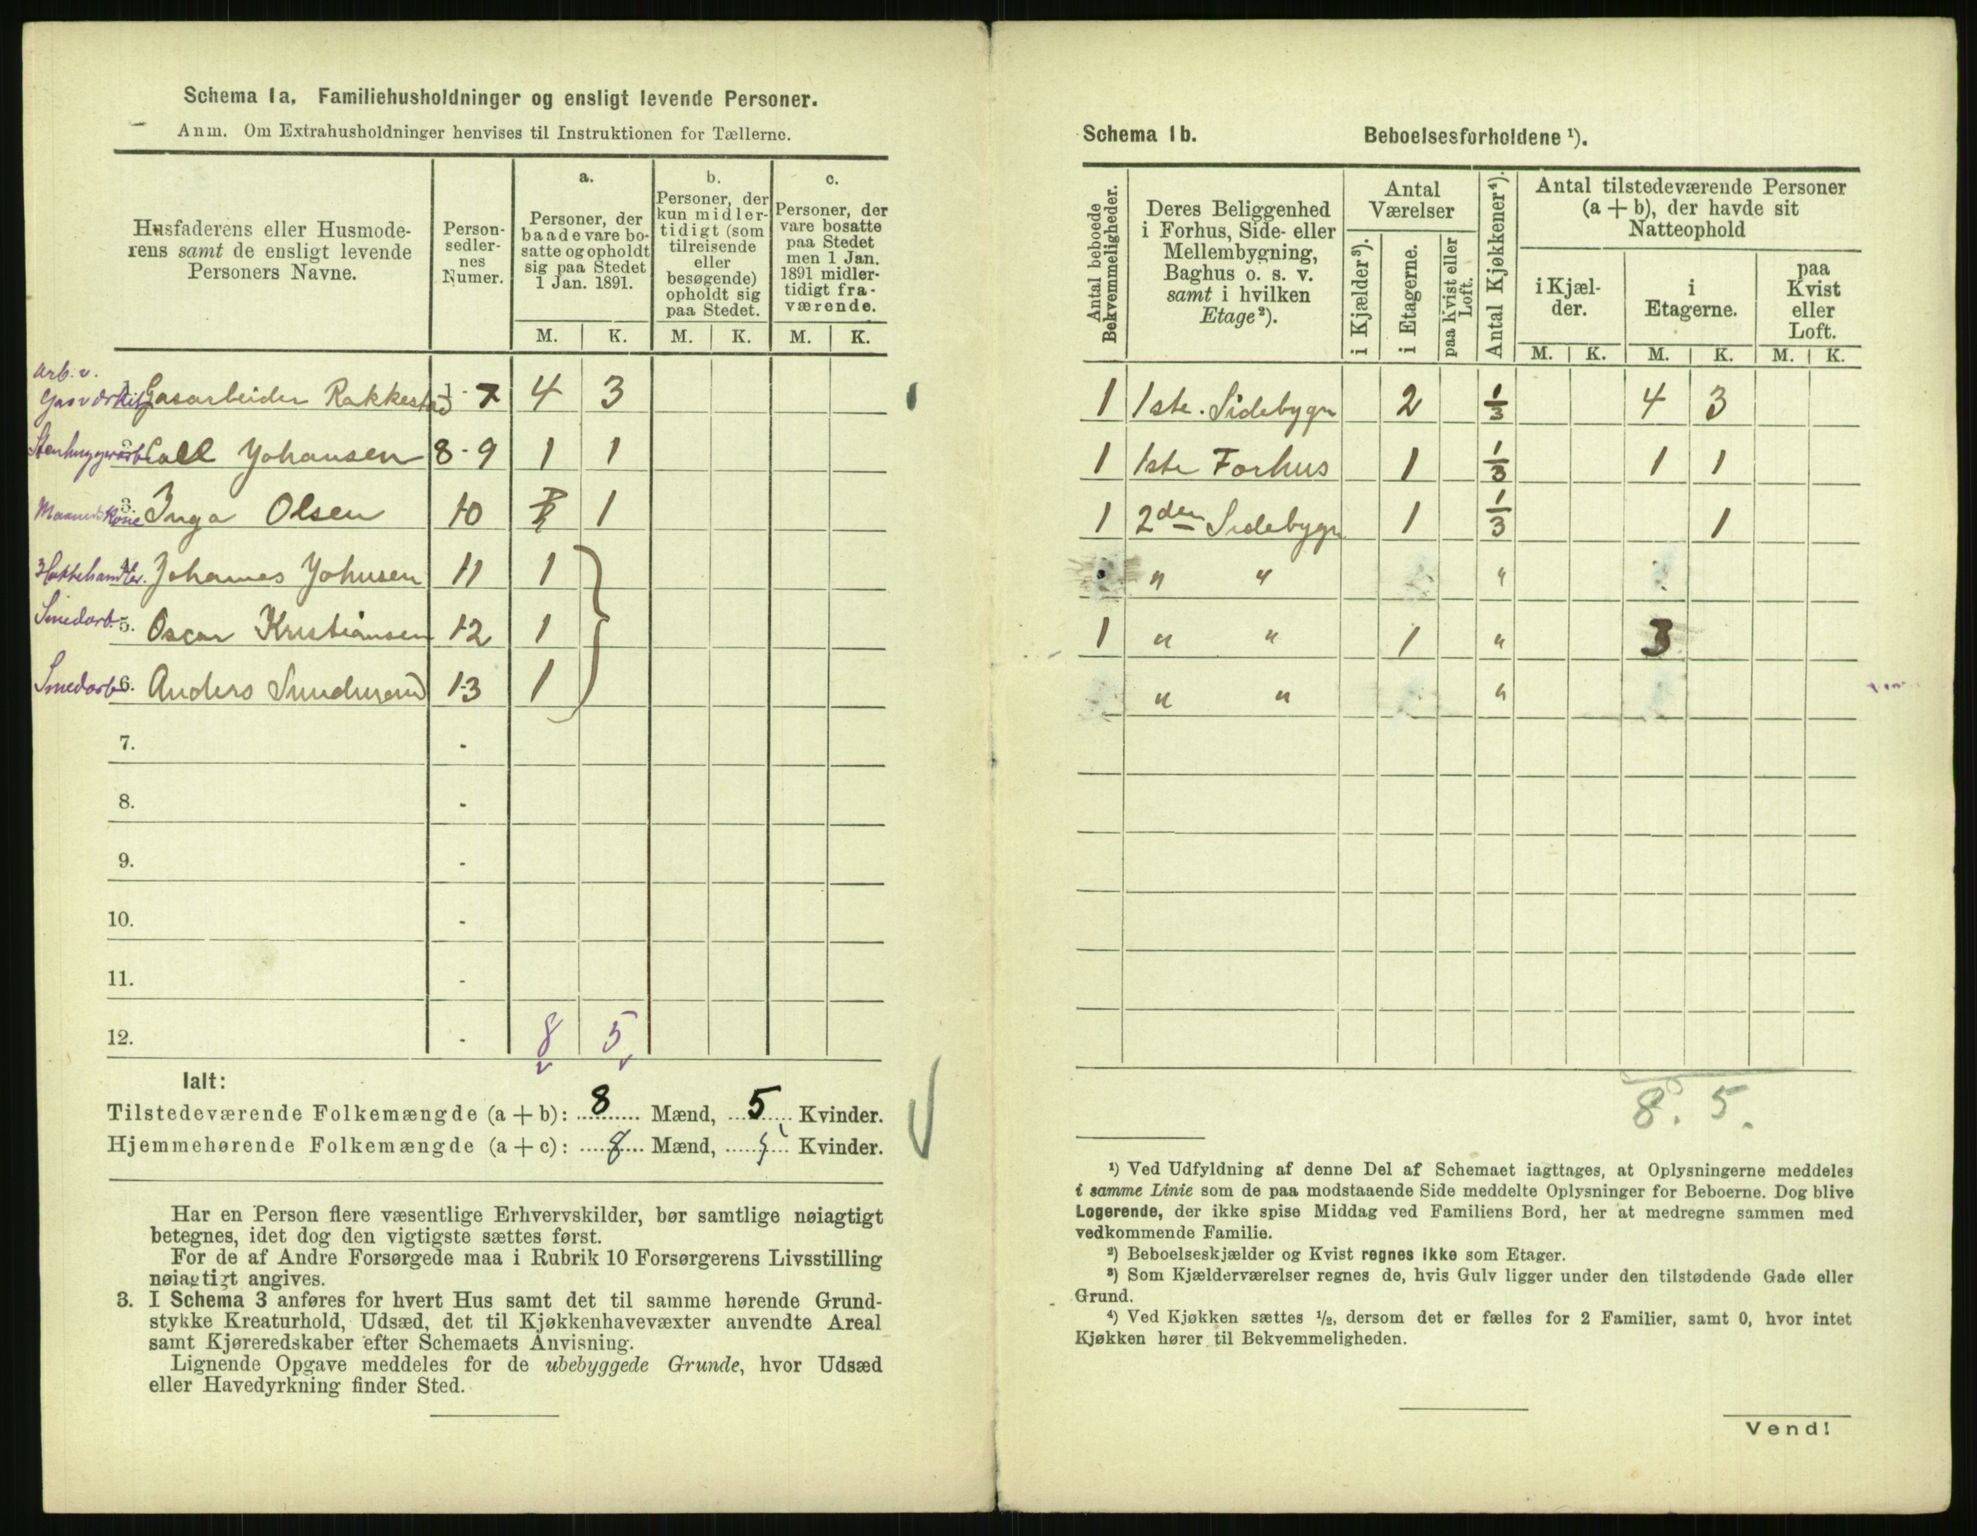 Schema 1a. Familiehusholdninger og ensligt levende Personer.
Anm. Om Extrahusholdninger henvises til Instruktionen for Tællerne.
Husfaderens eller Husmode-
rens samt de ensligt levende
Personers Navne.
Person-
sedler-
nes
Numer.
a.
Personer, der
baade vare bo-
satte og opholdt
sig paa Stedet
1 Jan. 1891.
b.
Personer, der
kun midler-
tidigt (som
tilreisende
eller
besøgende)
opholdt sig
paa Stedet.
c.
Personer, der
vare bosatte
paa Stedet
men 1 Jan.
1891 midler-
tidigt fra-
værende.
M. K. M. K. M. K.
Arb. v.
Gasværket Gasarbeider Rakkestad 1-7 4 3
Stenhuggerarb. Call Johansen 8-9 1 1
Maanedskone 3. Inga Olsen 10 1
Johannes Johnsen 11 1
Smedarb. 5. Oscar Kristiansen 12 1
Smedarb 6. Anders Sundmand 13 1
7. -
8. -
9. -
10. -
11. -
12. - 8 5
Ialt:
Tilstedeværende Folkemængde (a + b): 8 Mænd, 5 Kvinder.
Hjemmehørende Folkemængde (a + c): 8 Mænd, 5 Kvinder.
Har en Person flere væsentlige Erhvervskilder, bør samtlige nøiagtigt
betegnes, idet dog den vigtigste sættes først.
For de af Andre Forsørgede maa i Rubrik 10 Forsørgerens Livsstilling
nøiagtigt angives.
3. I Schema 3 anføres for hvert Hus samt det til samme hørende Grund-
stykke Kreaturhold, Udsæd, det til Kjøkkenhavevæxter anvendte Areal
samt Kjøreredskaber efter Schemaets Anvisning.
Lignende Opgave meddeles for de ubebyggede Grunde, hvor Udsæd
eller Havedyrkning finder Sted.
Schema 1b. Beboelsesforholdene ¹).
Antal beboede
Bekvemmeligheder.
Deres Beliggenhed
i Forhus, Side- eller
Mellembygning,
Baghus o. s. v.
samt i hvilken
Etage²).
Antal
Værelser
i Kjælder³).
i Etagerne.
paa Kvist eller
Loft.
Antal Kjøkkener⁴).
Antal tilstedeværende Personer
(a + b), der havde sit
Natteophold
i Kjæl-
der.
i
Etagerne.
paa
Kvist
eller
Loft.
M. K. M. K. M. K.
1 1ste. Sidebygn 2 1/3 4 3
1 1ste Forhus 1 1/3 1 1
1 2den Sidebygn 1 1/3 1
" " "
1 " " 1 " 3
" " "
8. 5.
¹) Ved Udfyldning af denne Del af Schemaet iagttages, at Oplysningerne meddeles
i samme Linie som de paa modstaaende Side meddelte Oplysninger for Beboerne. Dog blive
Logerende, der ikke spise Middag ved Familiens Bord, her at medregne sammen med
vedkommende Familie.
²) Beboelseskjælder og Kvist regnes ikke som Etager.
³) Som Kjælderværelser regnes de, hvis Gulv ligger under den tilstødende Gade eller
Grund.
⁴) Ved Kjøkken sættes ½, dersom det er fælles for 2 Familier, samt 0, hvor intet
Kjøkken hører til Bekvemmeligheden.
Vend!